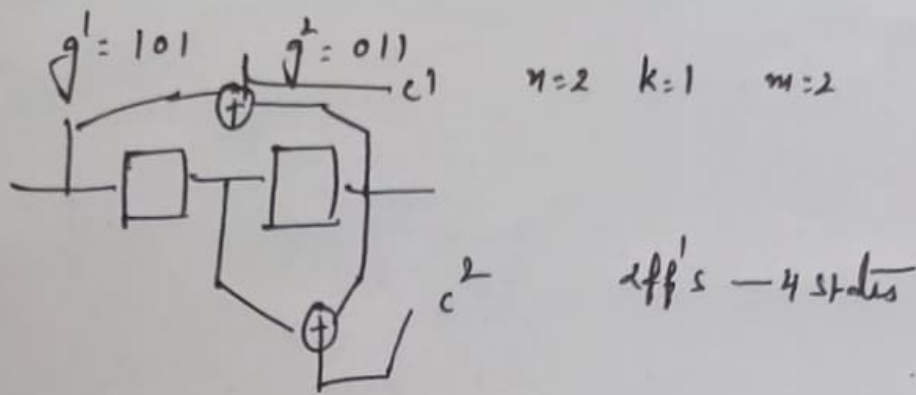 g¹= 101 g²= 011
c1 n=2 k=1 m=2
+
c²
2ff's — 4 states
+